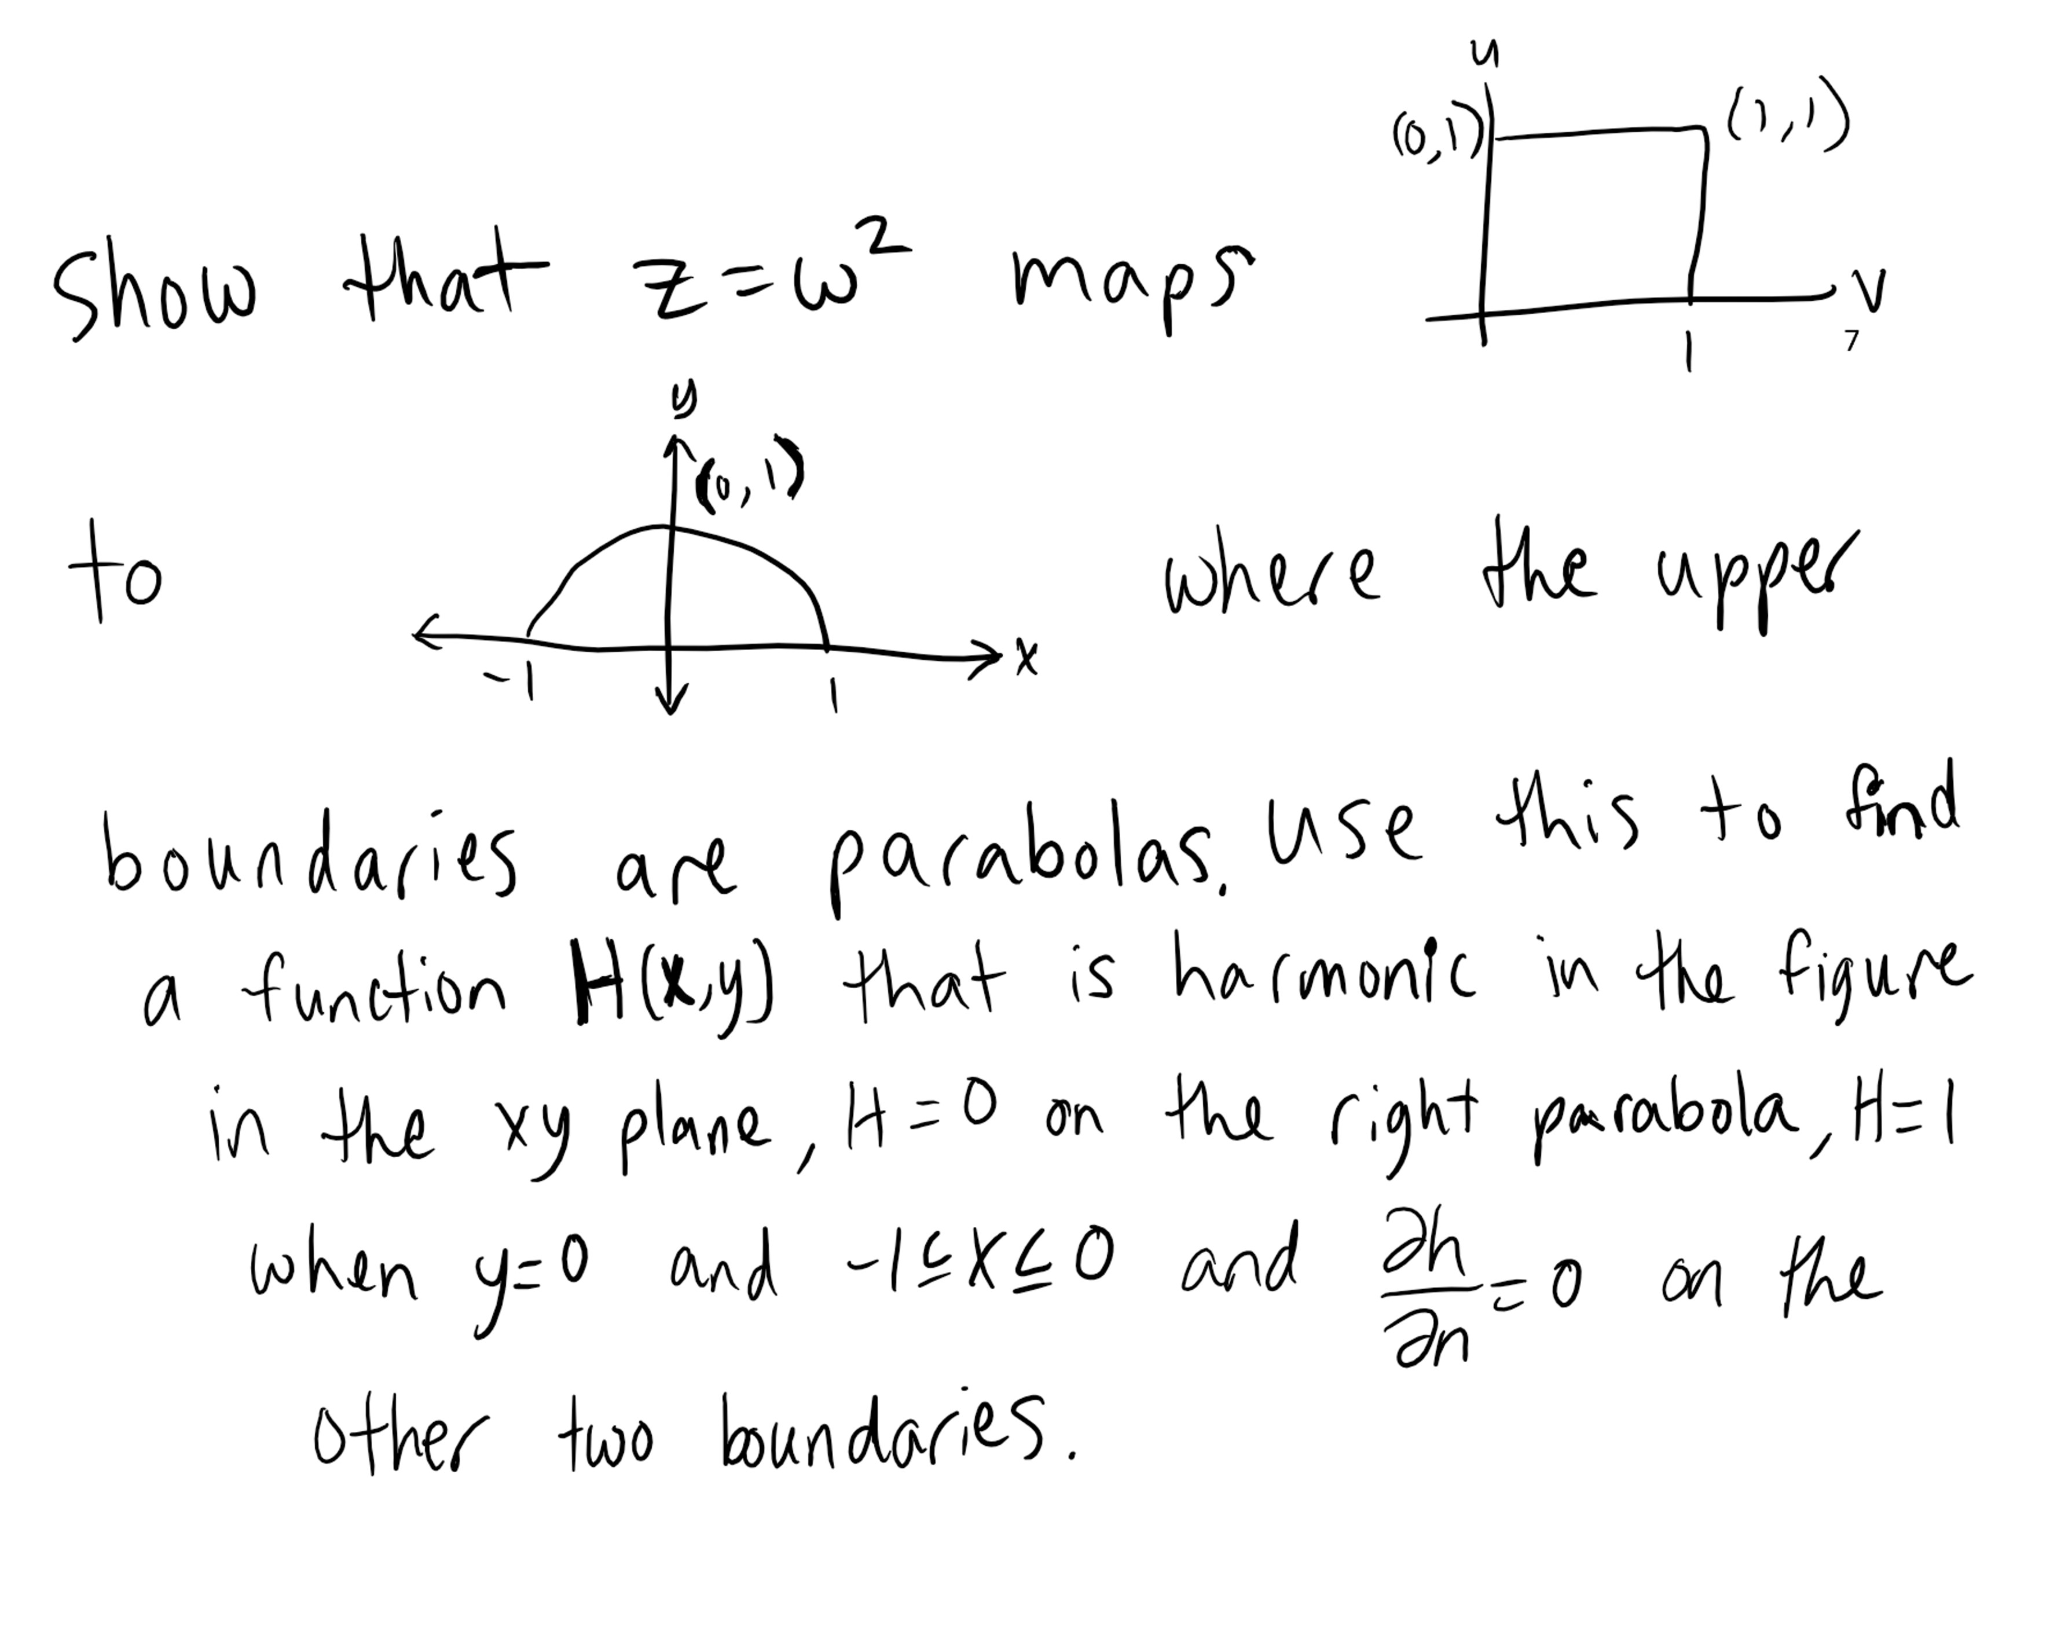 u
(0,1) (1,1)
Show that z=ω² maps
v
1
7
y
(0,1)
to where the upper
-1 1 x
boundaries are parabolas. Use this to find
a function H(x,y) that is harmonic in the figure
in the xy plane, H=0 on the right parabola, H=1
when y=0 and -1≤x≤0 and ∂h/∂n=0 on the
other two boundaries.